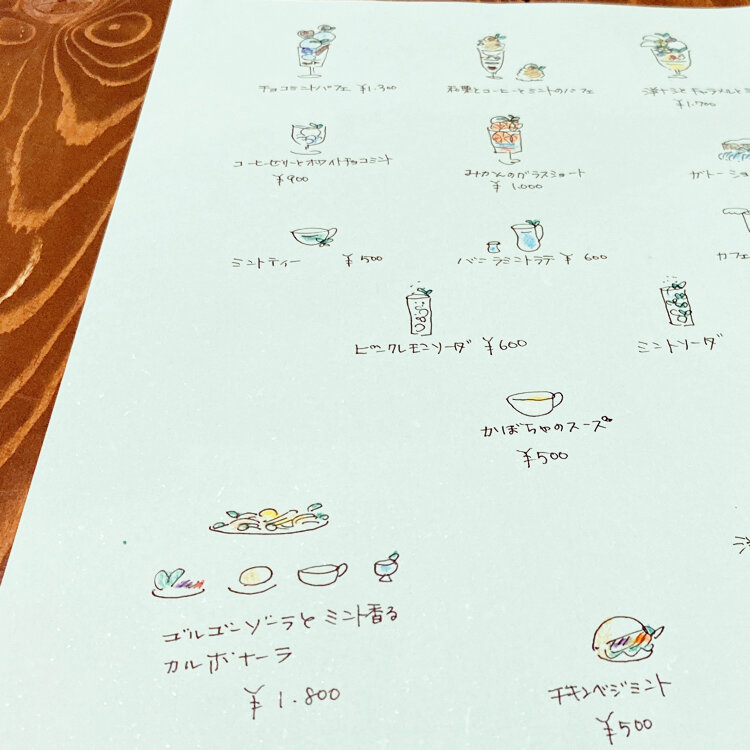 チョコミントパフェ ¥1.300
和栗とコーヒーとミントのパフェ
洋ナシとキャラメルとミ
¥1.700
コーヒーゼリーとホワイトチョコミント
¥900
みかんのグラスショート
¥1.000
ガトーショ
ミントティー ¥500
バニラミントラテ ¥600
カフェ
ピンクレモンソーダ ¥600
ミントソーダ
かぼちゃのスープ
¥500
ゴルゴンゾーラとミント香る
カルボナーラ
¥1.800
チキンベジミント
¥500